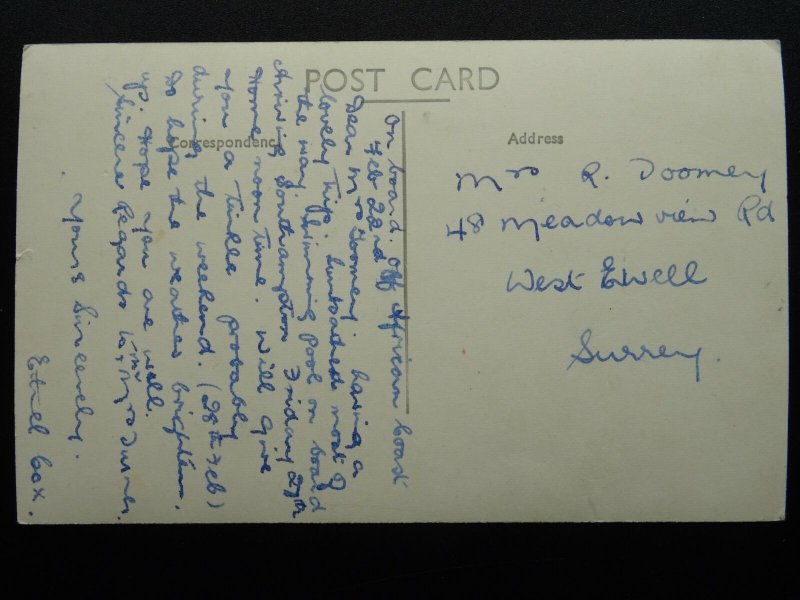 POST CARD
Correspondence
Address
On board. off African Coast
Feb 23rd
Dear Mrs Toomey. having a
lovely trip. Sunbathed most of
the way. Swimming Pool on board
Arriving Southampton Friday 27th
Home noon time. Will give
you a tinkle probably
during the weekend. (28th Feb)
Do hope the weather brightens
up. Hope you are well.
Sincere Regards to Mr & Mrs Turner.
Yours Sincerely.
Ethel Cox.
Mrs R. Toomey
48 Meadow view Rd
West Ewell
Surrey.